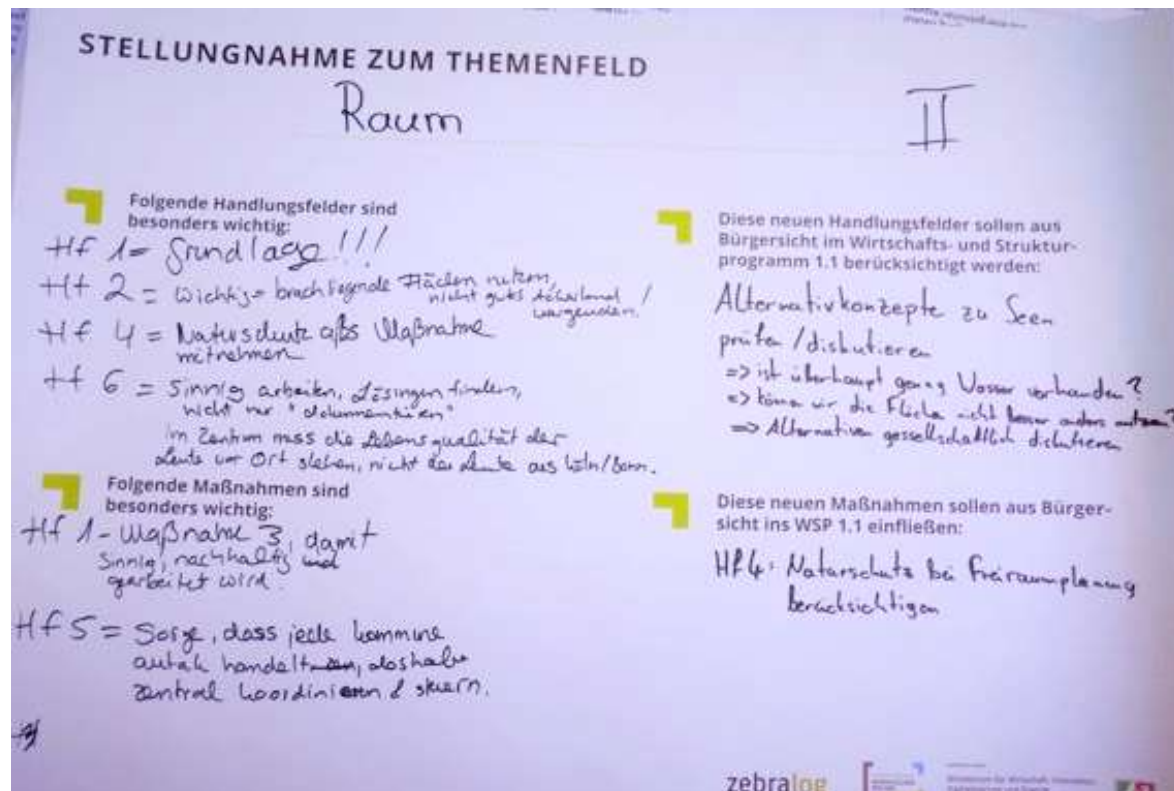 STELLUNGNAHME ZUM THEMENFELD
Raum
II
Folgende Handlungsfelder sind
besonders wichtig:
Hf 1 = Grundlage !!!
Hf 2 = wichtig = brachliegende Flächen nutzen,
nicht gutes Ackerland /
Hf 4 = Naturschutz als Maßnahme
mitnehmen
Hf 6 = Sinnig arbeiten, Lösungen finden,
nicht nur "dokumentieren"
im Zentrum muss die Lebensqualität der
Leute vor Ort stehen, nicht der Leute aus Köln/Bonn.
Folgende Maßnahmen sind
besonders wichtig:
Hf 1 - Maßnahme 3, damit
sinnig, nachhaltig und
gearbeitet wird.
Hf 5 = Sorge, dass jede Kommune
autak handelt, deshalb
zentral koordinieren & steuern.
Diese neuen Handlungsfelder sollen aus
Bürgersicht im Wirtschafts- und Struktur-
programm 1.1 berücksichtigt werden:
Alternativkonzepte zu Seen
prüfen / diskutieren
=> ist überhaupt genug Wasser vorhanden?
=> könne wir die Fläche nicht besser anders nutzen?
=> Alternativen gesellschaftlich diskutieren
Diese neuen Maßnahmen sollen aus Bürger-
sicht ins WSP 1.1 einfließen:
Hf 4: Naturschutz bei Freiraumplanung
berücksichtigen
zebralog